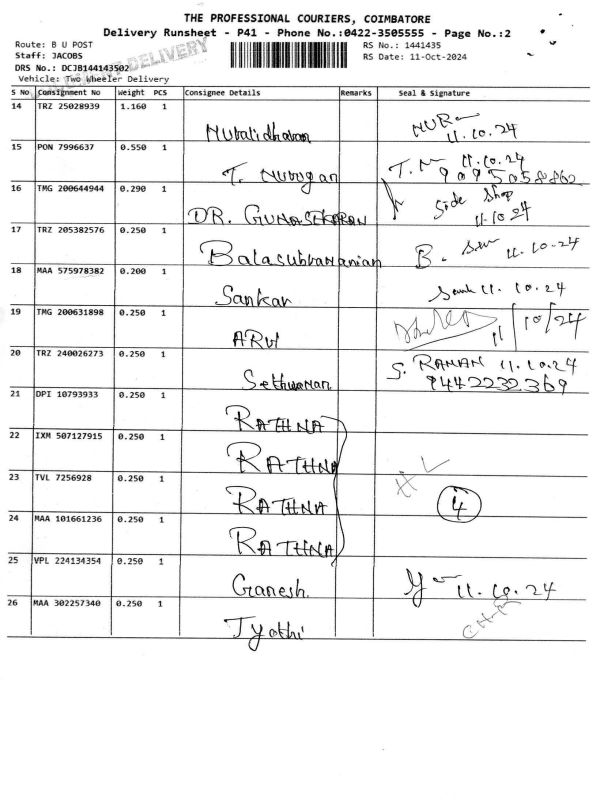 THE PROFESSIONAL COURIERS, COIMBATORE
Delivery Runsheet - P41 - Phone No.:0422-3505555 - Page No.:2
Route: B U POST
RS No.: 1441435
Staff: JACOBS
RS Date: 11-Oct-2024
DRS No.: DCJB144143502
DELIVERY
Vehicle: Two Wheeler Delivery
S No Consignment No Weight PCS Consignee Details Remarks Seal & Signature
14 TRZ 25028939 1.160 1
Muralidharan 11.10.24
15 PON 7996637 0.550 1
T. Murugan 11.10.24
16 TMG 200644944 0.290 1
DR. GUNASEKARAN Side Shop
11.10.24
17 TRZ 205382576 0.250 1
Balasubramanian B. 11.10.24
18 MAA 575978382 0.200 1
Sankar 11.10.24
19 TMG 200631898 0.250 1
ARVI 11/10/24
20 TRZ 240026273 0.250 1
S. RAMAN 11.10.24
9442232369
21 DPI 10793933 0.250 1
RATHNA
22 IXM 507127915 0.250 1
RATHNA
23 TVL 7256928 0.250 1
RATHNA 4
24 MAA 101661236 0.250 1
RATHNA
25 VPL 224134354 0.250 1
Ganesh 11.10.24
26 MAA 302257340 0.250 1
Jyothi